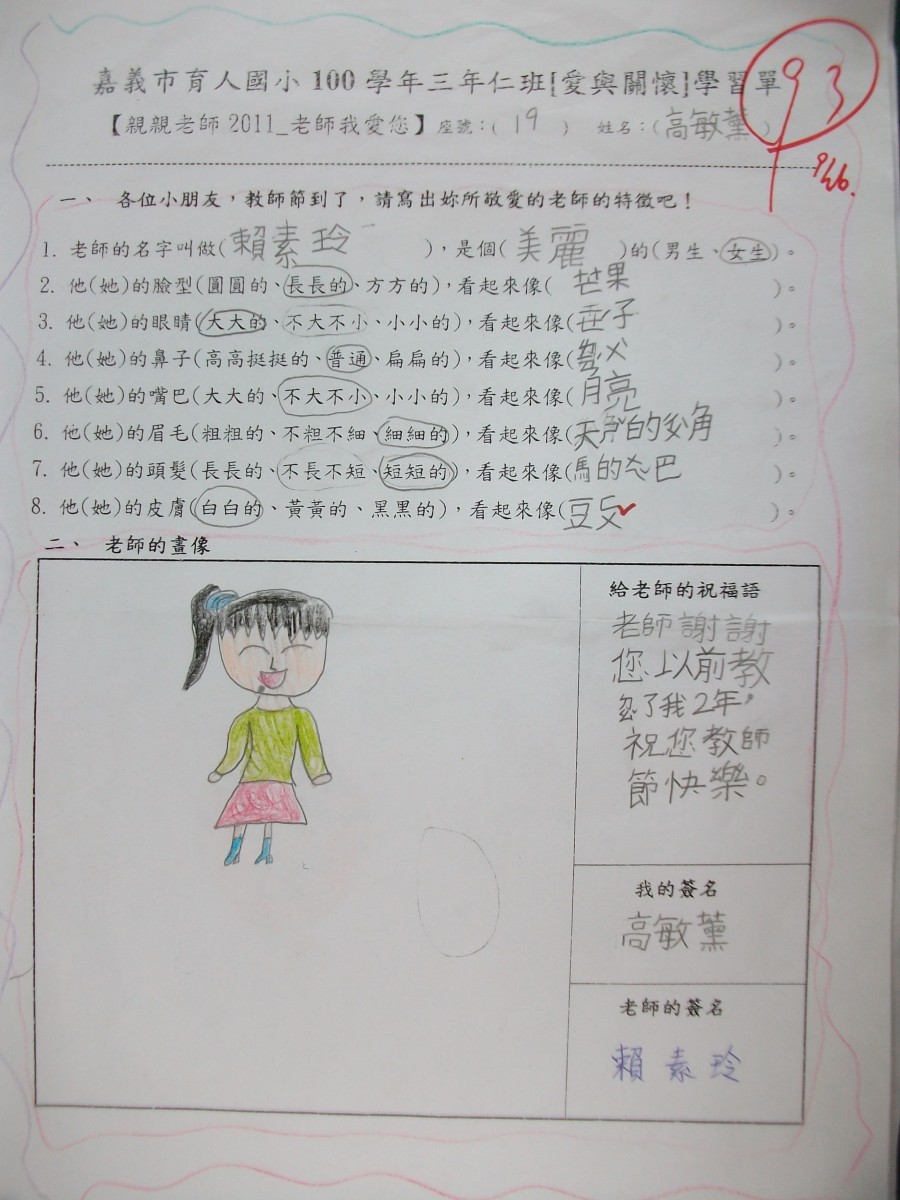 嘉義市育人國小100學年三年仁班[愛與關懷]學習單
93
【親親老師2011_老師我愛您】座號:(19) 姓名:(高敏薰)
9/26.
一、 各位小朋友,教師節到了,請寫出妳所敬愛的老師的特徵吧!
1. 老師的名字叫做(賴素玲),是個(美麗)的(男生、女生)。
2. 他(她)的臉型(圓圓的、長長的、方方的),看起來像(芒果)。
3. 他(她)的眼睛(大大的、不大不小、小小的),看起來像(子)。
4. 他(她)的鼻子(高高挺挺的、普通、扁扁的),看起來像()。
5. 他(她)的嘴巴(大大的、不大不小、小小的),看起來像(月亮)。
6. 他(她)的眉毛(粗粗的、不粗不細、細細的),看起來像(天的角)。
7. 他(她)的頭髮(長長的、不長不短、短短的),看起來像(馬的巴)。
8. 他(她)的皮膚(白白的、黃黃的、黑黑的),看起來像(豆)。
二、 老師的畫像
給老師的祝福語
老師謝謝
您以前教
了我2年,
祝您教師
節快樂。
我的簽名
高敏薰
老師的簽名
賴素玲